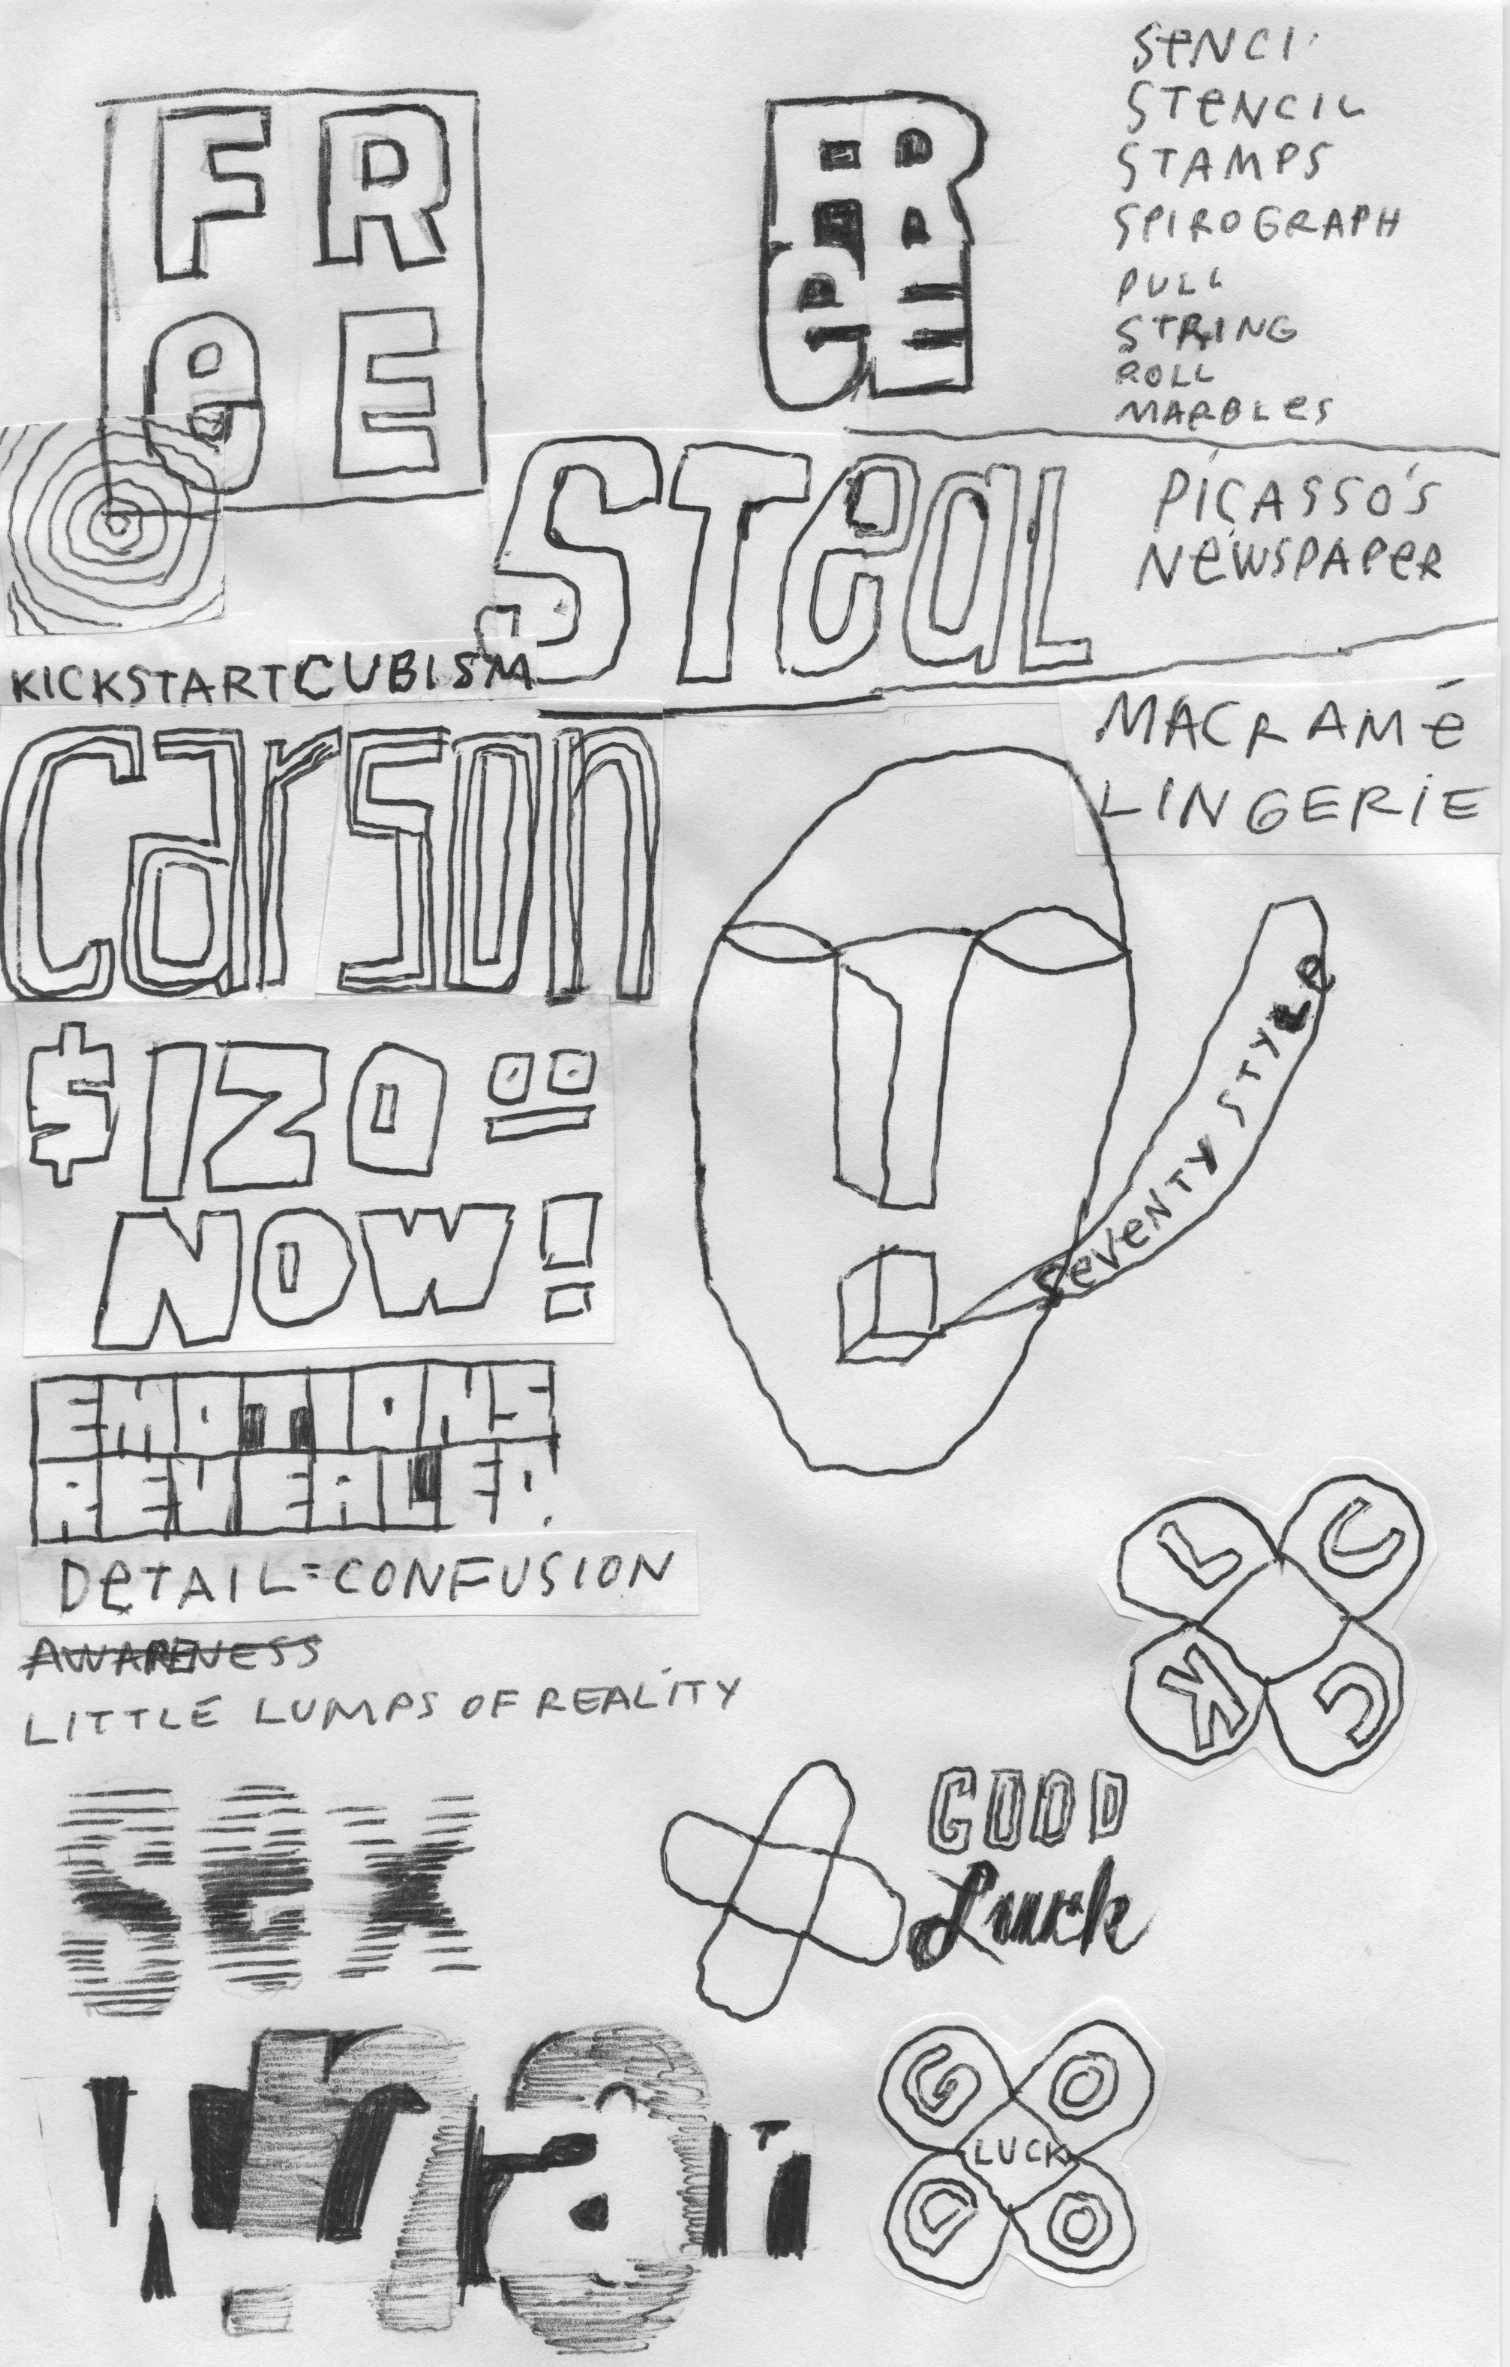 FR
eE
FR
eE
SeNCI
STeNCIL
STAMPS
SPIROGRAPH
PULL
STRING
ROLL
MARBLeS
STeaL
PICASSO'S
NeWSPAPeR
KICKSTART CUBISM
carson
MACRAMé
LINGERIE
$120 00
NOW!
SeVeNTY STYLe
EMOTIONS
DeTAIL=CONFUSION
AWARENESS
LITTLE LUMPS OF REALITY
LUCK
sex
GOOD
Luck
GOOD
LUCK